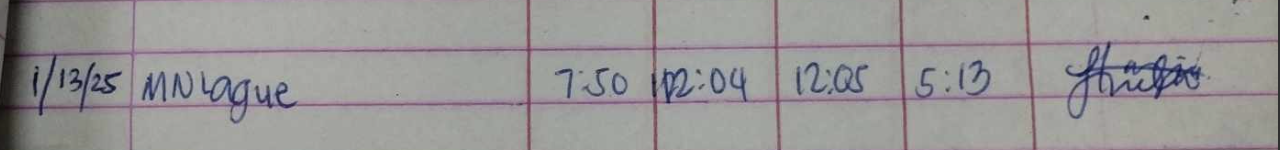 1/13/25 MNLague 7:50 12:04 12:05 5:13